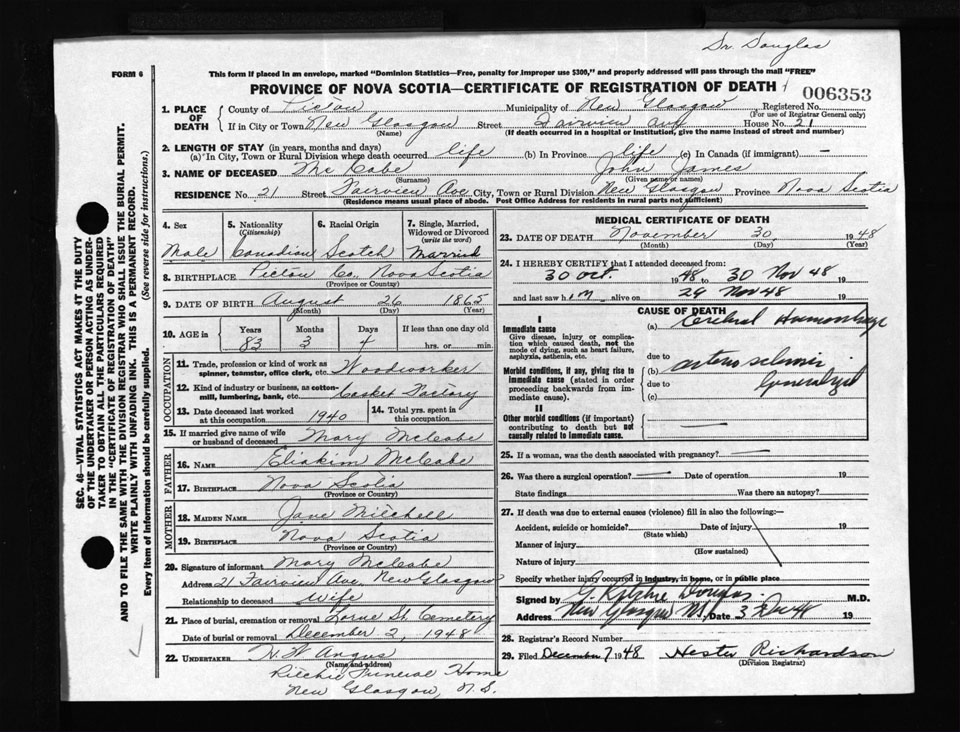 Dr. Douglas
FORM 6
This form if placed in an envelope, marked "Dominion Statistics—Free, penalty for improper use $300," and properly addressed will pass through the mail "FREE"
PROVINCE OF NOVA SCOTIA—CERTIFICATE OF REGISTRATION OF DEATH
006353
1. PLACE OF DEATH
County of Pictou Municipality of New Glasgow Registered No.
(For use of Registrar General only)
If in City or Town New Glasgow Street Fairview House No. 21
(Name) (If death occurred in a hospital or institution, give the name instead of street and number)
2. LENGTH OF STAY (in years, months and days)
(a) In City, Town or Rural Division where death occurred life (b) In Province life (c) In Canada (if immigrant) —
3. NAME OF DECEASED McCabe John James
(Surname) (Given name or names)
RESIDENCE No. 21 Street Fairview Ave City, Town or Rural Division New Glasgow Province Nova Scotia
(Residence means usual place of abode. Post Office Address for residents in rural parts not sufficient)
4. Sex
Male
5. Nationality
(Citizenship)
Canadian
6. Racial Origin
Scotch
7. Single, Married, Widowed or Divorced
(write the word)
Married
8. BIRTHPLACE Pictou Co. Nova Scotia
(Province or Country)
9. DATE OF BIRTH August 26 1865
(Month) (Day) (Year)
10. AGE in Years Months Days If less than one day
83 3 4 hrs. or min.
OCCUPATION
11. Trade, profession or kind of work as spinner, teamster, office clerk, etc. Woodworker
12. Kind of industry or business, as cotton-mill, lumbering, bank, etc. Casket Factory
13. Date deceased last worked at this occupation 1940
14. Total yrs. spent in this occupation
15. If married give name of wife or husband of deceased Mary McCabe
FATHER
16. NAME Eliakim McCabe
17. BIRTHPLACE Nova Scotia
(Province or Country)
MOTHER
18. MAIDEN NAME Jane Mitchell
19. BIRTHPLACE Nova Scotia
(Province or Country)
20. Signature of informant Mary McCabe
Address 21 Fairview Ave, New Glasgow
Relationship to deceased Wife
21. Place of burial, cremation or removal Lorne St. Cemetery
Date of burial or removal December 2, 1948
22. UNDERTAKER H. W. Angus
(Name and address)
Ritchie Funeral Home
New Glasgow, N.S.
MEDICAL CERTIFICATE OF DEATH
23. DATE OF DEATH November 30 1948
(Month) (Day) (Year)
24. I HEREBY CERTIFY that I attended deceased from:
30 Oct. 48 to 30 Nov 48 19
and last saw him alive on 29 Nov 48 19
CAUSE OF DEATH
I
Immediate cause
Give disease, injury or complication which caused death, not the mode of dying, such as heart failure, asphyxia, asthenia, etc.
(a) Cerebral Haemorrhage
due to
Morbid conditions, if any, giving rise to immediate cause (stated in order proceeding backwards from immediate cause).
(b)
due to
(c)
II
Other morbid conditions (if important) contributing to death but not causally related to immediate cause.
25. If a woman, was the death associated with pregnancy?
26. Was there a surgical operation? — Date of operation 19
State findings Was there an autopsy?
27. If death was due to external causes (violence) fill in also the following:—
Accident, suicide or homicide? Date of injury 19
(State which)
Manner of injury
(How sustained)
Nature of injury
Specify whether injury occurred in industry, in home, or in public place
Signed by G. Ritchie Douglas M.D.
Address New Glasgow NS Date 3 Dec 48 19
28. Registrar's Record Number
29. Filed December 7 1948 Hester Richardson
(Division Registrar)
SEC. 46—VITAL STATISTICS ACT MAKES IT THE DUTY
OF THE UNDERTAKER OR PERSON ACTING AS UNDER-
TAKER TO OBTAIN ALL THE PARTICULARS REQUIRED
IN THE "CERTIFICATE OF REGISTRATION OF DEATH"
AND TO FILE THE SAME WITH THE DIVISION REGISTRAR WHO SHALL ISSUE THE BURIAL PERMIT.
WRITE PLAINLY WITH UNFADING INK. THIS IS A PERMANENT RECORD.
Every item of information should be carefully supplied. (See reverse side for instructions.)